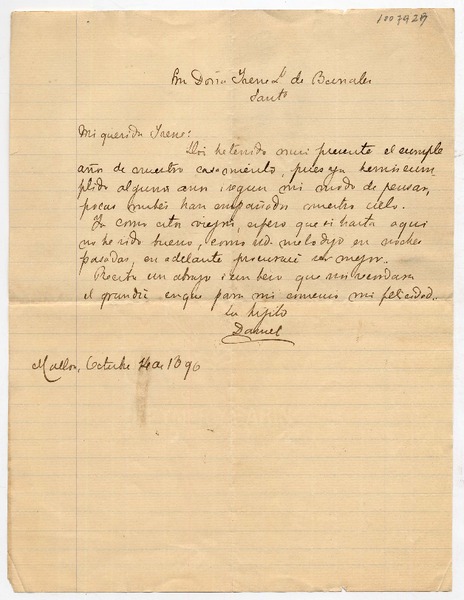 1007929
Sra Doña Irene L. de Banales
Santo
Mi querida Irene:
Hoi he tenido mui presente el cumple
años de nuestro casamiento, pues ya hemos cum
plido algunos anos i segun mi modo de pensar,
pocas nubes han empañado nuestro cielo.
Ya como estoi viejon, espero que si hasta aqui
no he sido bueno, como ud. me lo dijo en noches
pasadas, en adelante procuraré ser mejor.
Reciba un abrazo i un beso que nos recordara
el grandia en que para mi comenzo mi felicidad.
Su hijito
Daniel
Malloa, Octubre 14 de 1896